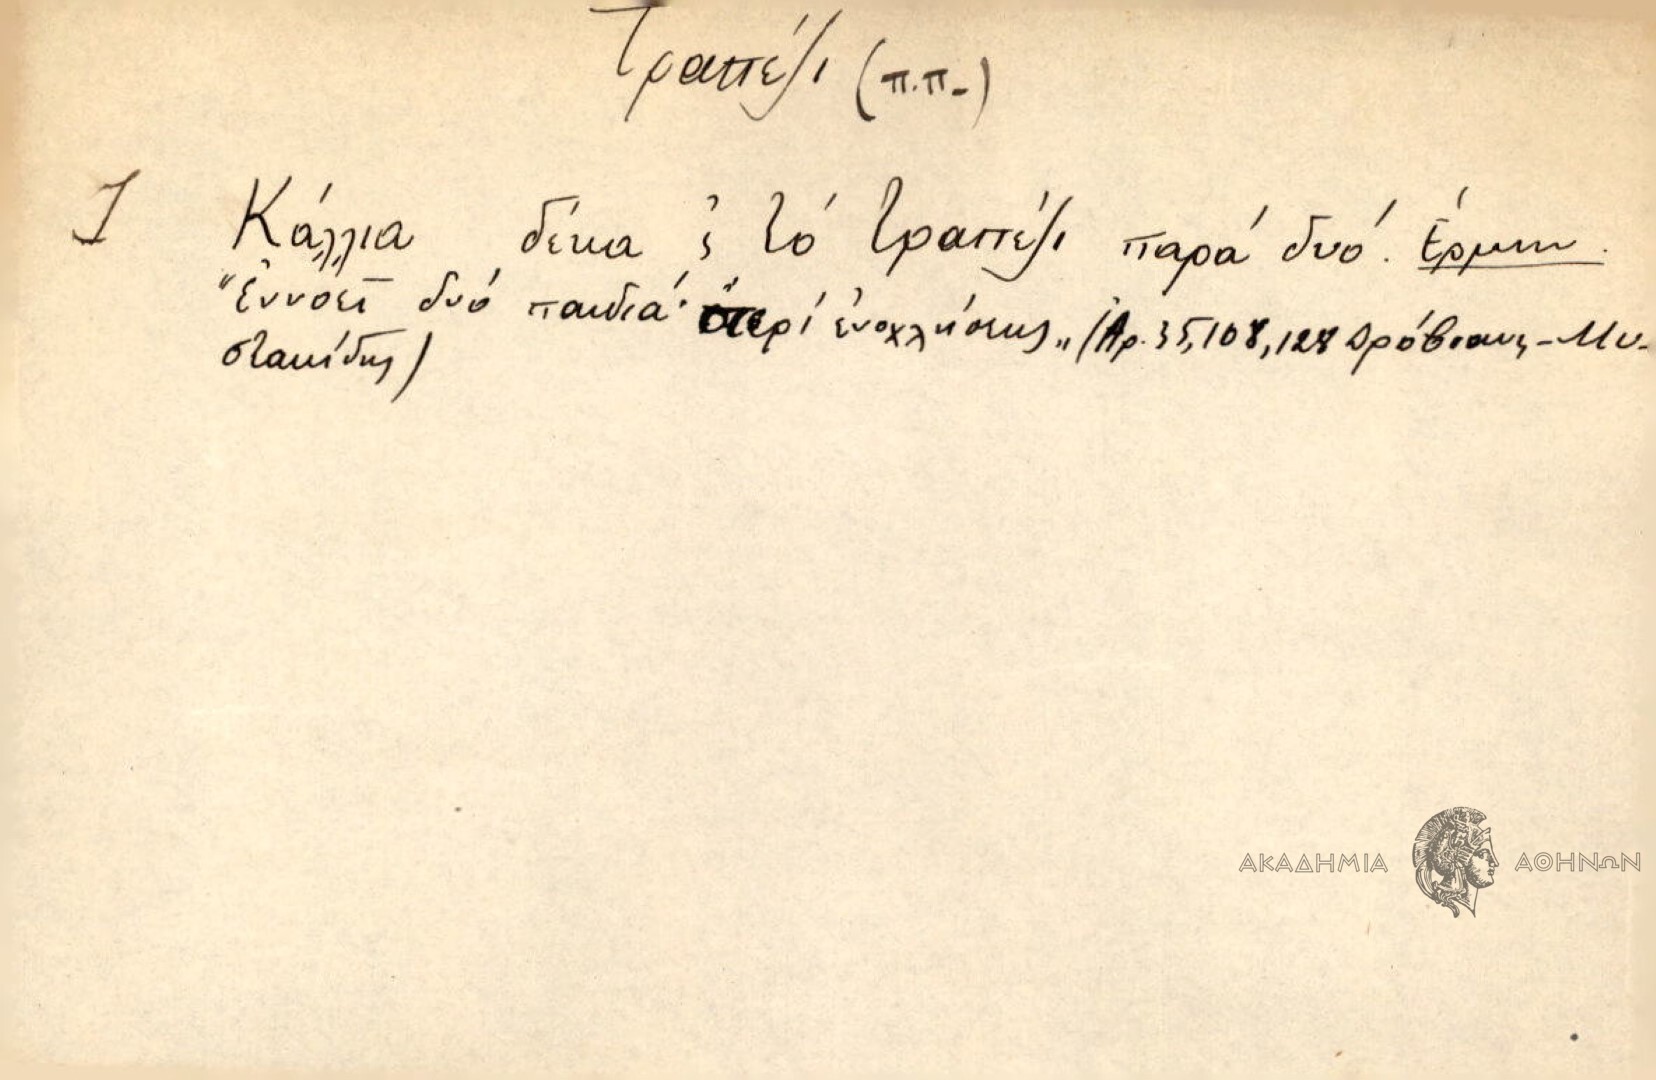 Τραπέζι (π.π.)
1 Κάλλια δέκα ς τό τραπέζι παρά δυό. Ἑρμην.
"Ἐννοεῖ δυό παιδιά· περί ἐνοχλήσεως" (Ἀρ. 35, 108, 128 Δρόβιανη - Μυ-
στακίδης)
ΑΚΑΔΗΜΙΑ ΑΘΗΝΩΝ